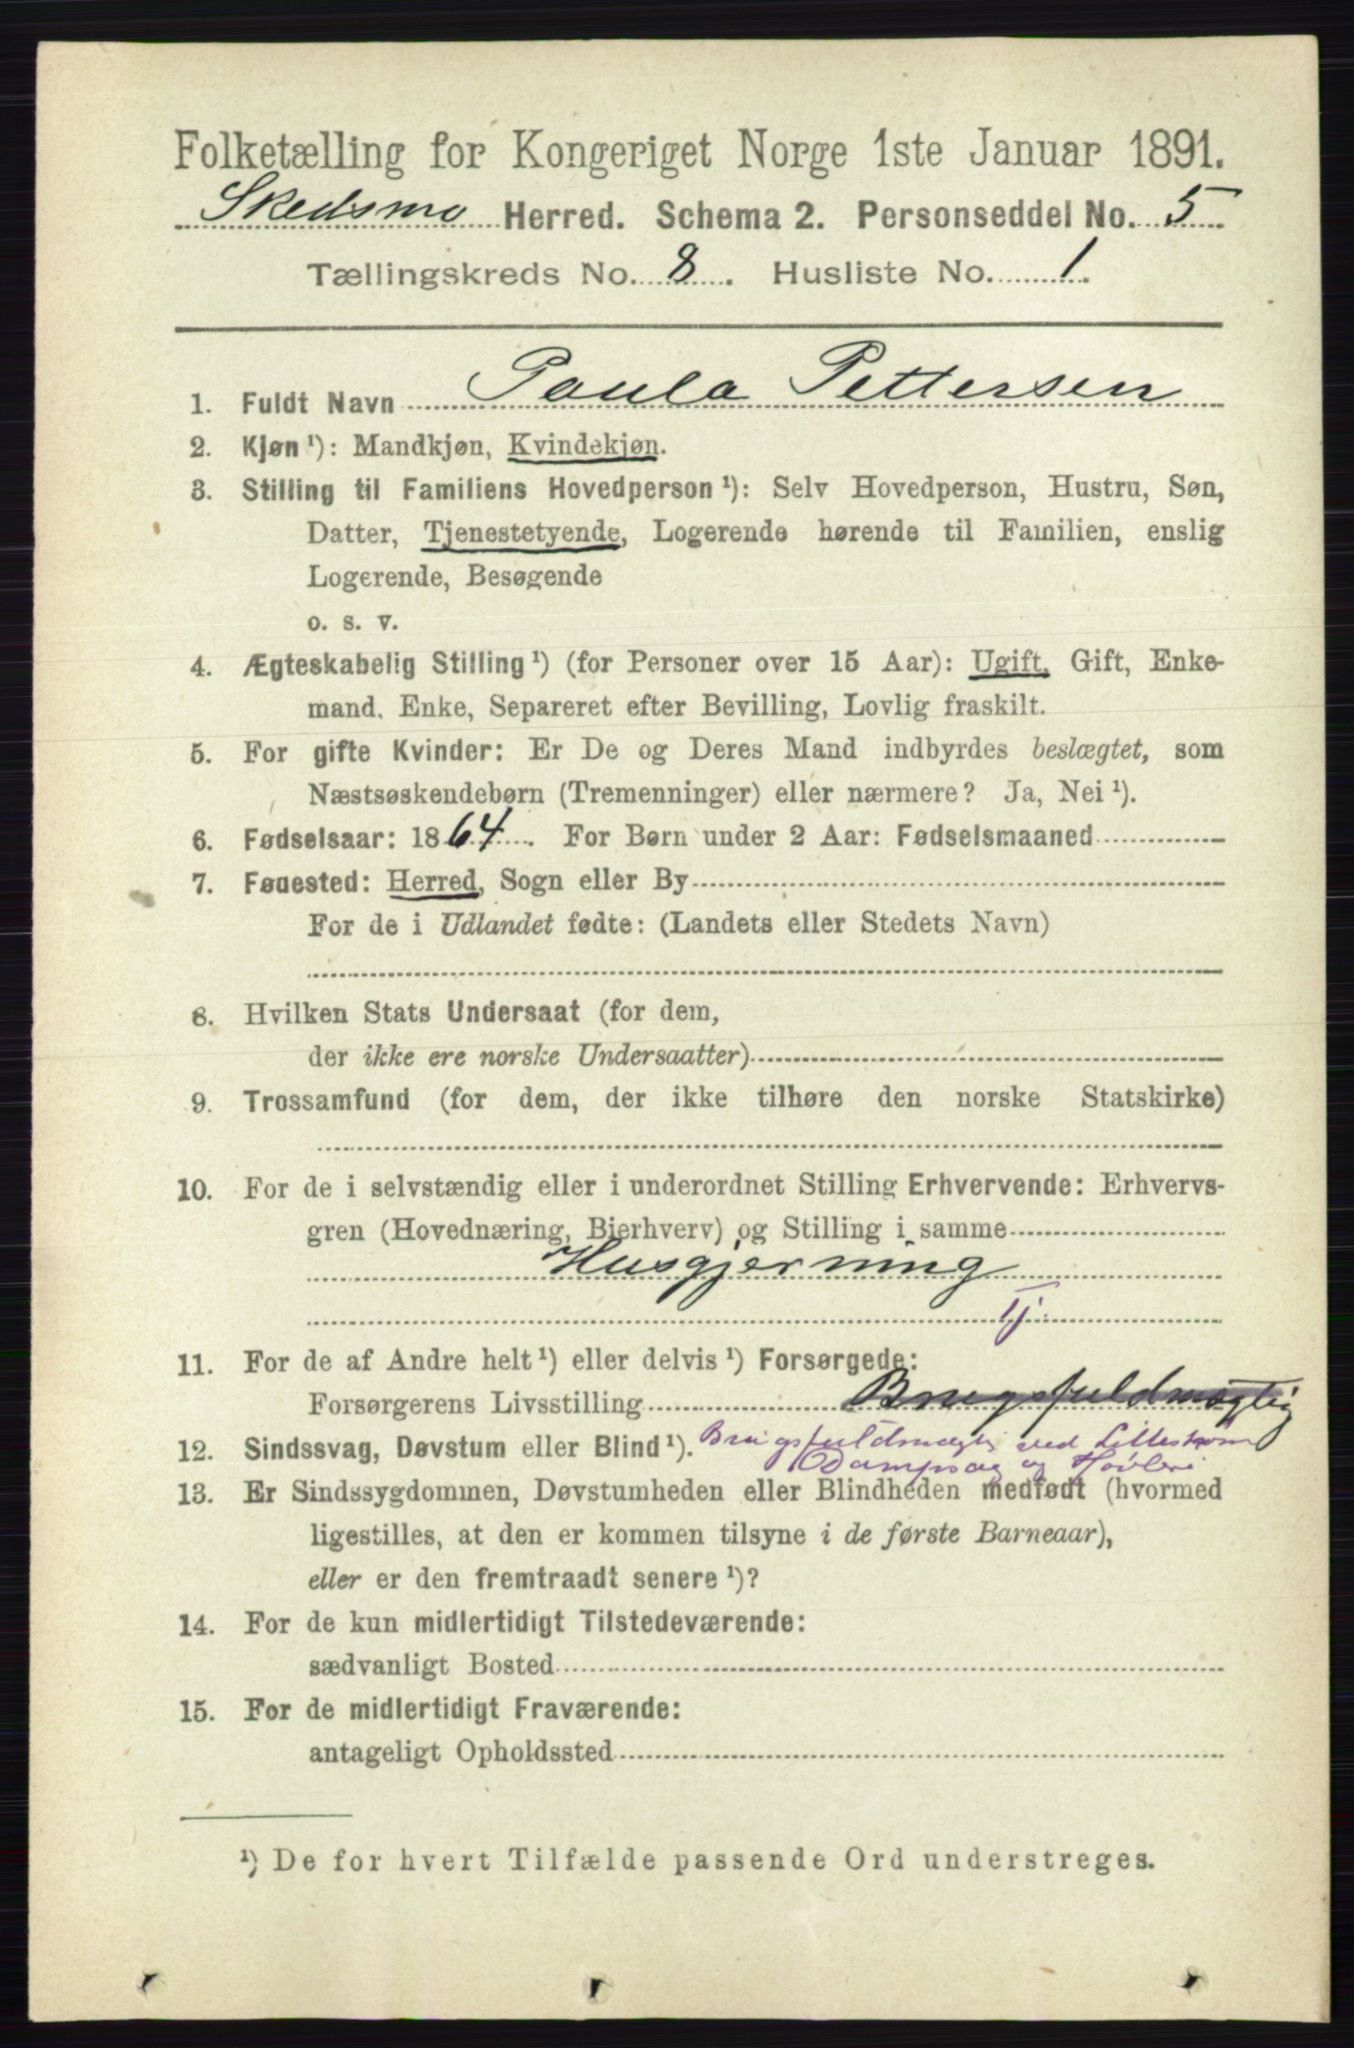 Folketælling for Kongeriget Norge 1ste Januar 1891.
Skedsmo Herred. Schema 2. Personseddel No. 5
Tællingskreds No. 8. Husliste No. 1.
1. Fuldt Navn Paula Pettersen
2. Kjøn ¹): Mandkjøn, Kvindekjøn.
3. Stilling til Familiens Hovedperson ¹): Selv Hovedperson, Hustru, Søn,
Datter, Tjenestetyende, Logerende hørende til Familien, enslig
Logerende, Besøgende
o. s. v.
4. Ægteskabelig Stilling ¹) (for Personer over 15 Aar): Ugift, Gift, Enke-
mand, Enke, Separeret efter Bevilling, Lovlig fraskilt.
5. For gifte Kvinder: Er De og Deres Mand indbyrdes beslægtet, som
Næstsøskendebørn (Tremenninger) eller nærmere? Ja, Nei ¹).
6. Fødselsaar: 1864. For Børn under 2 Aar: Fødselsmaaned
7. Fødested: Herred, Sogn eller By
For de i Udlandet fødte: (Landets eller Stedets Navn)
8. Hvilken Stats Undersaat (for dem,
der ikke ere norske Undersaatter)
9. Trossamfund (for dem, der ikke tilhøre den norske Statskirke)
10. For de i selvstændig eller i underordnet Stilling Erhvervende: Erhvervs-
gren (Hovednæring, Bierhverv) og Stilling i samme
Husgjerning
Tj.
11. For de af Andre helt ¹) eller delvis ¹) Forsørgede:
Forsørgerens Livsstilling Brugsfuldmægtig
12. Sindssvag, Døvstum eller Blind ¹). Brugsfuldmægtig ved Lillestrøm
Dampsag og Høvleri
13. Er Sindssygdommen, Døvstumheden eller Blindheden medfødt (hvormed
ligestilles, at den er kommen tilsyne i de første Barneaar),
eller er den fremtraadt senere ¹)?
14. For de kun midlertidigt Tilstedeværende:
sædvanligt Bosted
15. For de midlertidigt Fraværende:
antageligt Opholdssted
¹) De for hvert Tilfælde passende Ord understreges.